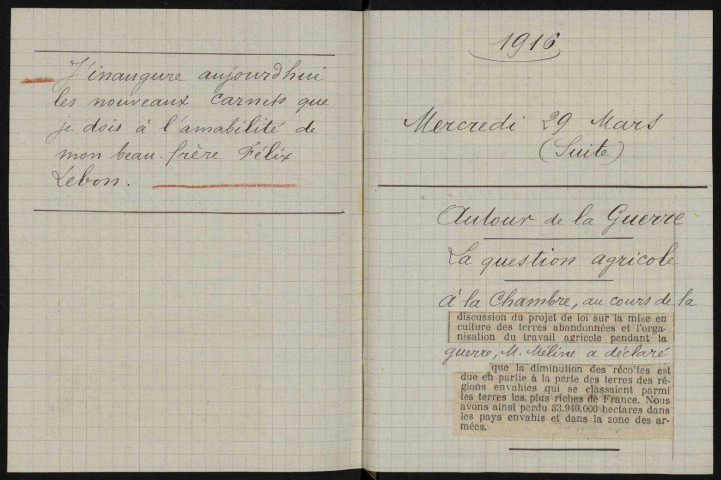 J'inaugure aujourd'hui
les nouveaux carnets que
je dois à l'amabilité de
mon beau-frère Félix
Lebon.
1916
Mercredi 29 Mars
(Suite)
Autour de la Guerre
La question agricole
à la Chambre, au cours de la
discussion du projet de loi sur la mise en
culture des terres abandonnées et l'orga-
nisation du travail agricole pendant la
guerre, M. Méline a déclaré
que la diminution des récoltes est
due en partie à la perte des terres des ré-
gions envahies qui se classaient parmi
les terres les plus riches de France. Nous
avons ainsi perdu 33.940.000 hectares dans
les pays envahis et dans la zone des ar-
mées.